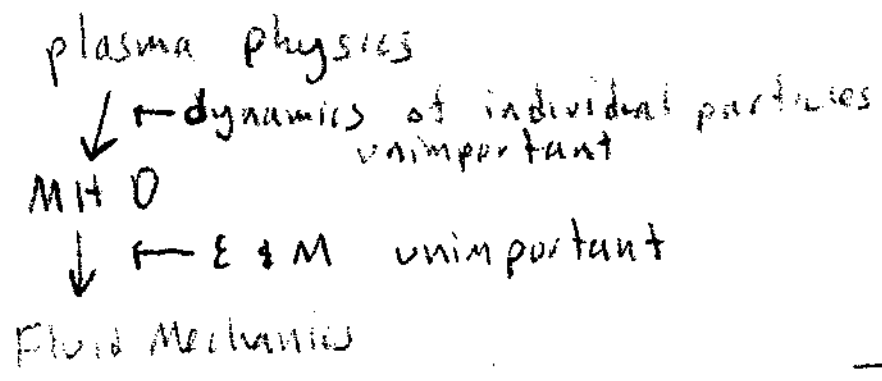 plasma physics
dynamics of individual particles
unimportant
MHD
E & M unimportant
Fluid Mechanics